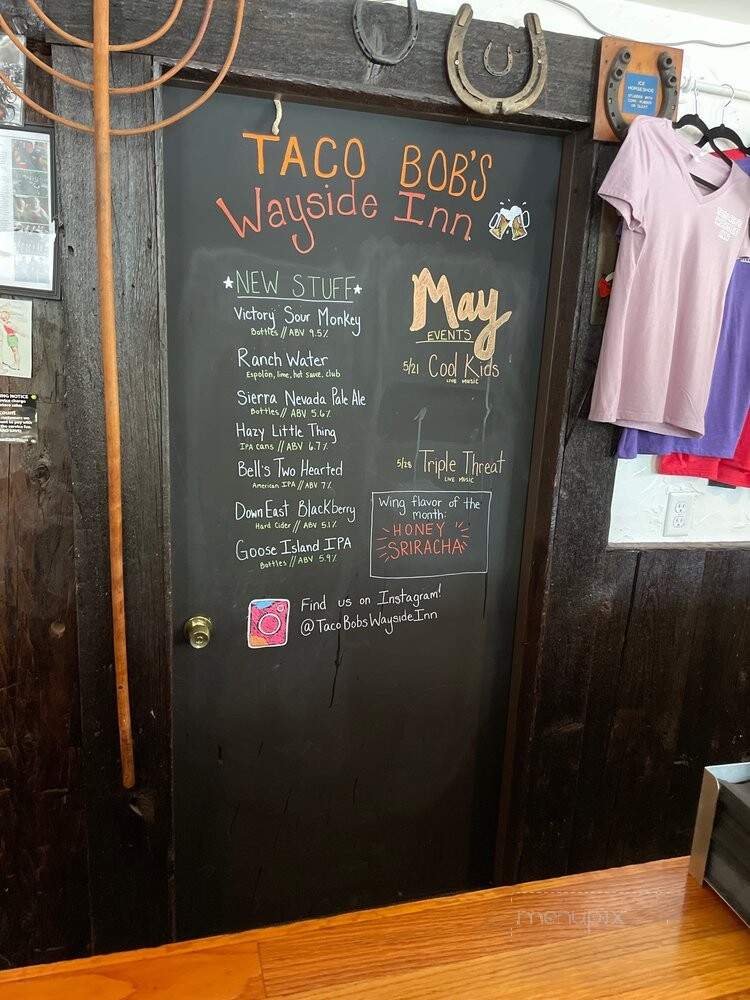 TACO BOB'S
Wayside Inn
NEW STUFF
Victory Sour Monkey
Bottles // ABV 9.5%
Ranch Water
Espolón, lime, hot sauce, club
Sierra Nevada Pale Ale
Bottles // ABV 5.6%
Hazy Little Thing
IPA cans // ABV 6.7%
Bell's Two Hearted
American IPA // ABV 7%
Down East Blackberry
Hard Cider // ABV 5.1%
Goose Island IPA
Bottles // ABV 5.9%
May
EVENTS
5/21 Cool Kids
LIVE MUSIC
5/28 Triple Threat
LIVE MUSIC
Wing flavor of the
month:
HONEY
SRIRACHA
Find us on Instagram!
@TacoBobsWaysideInn
ICE
HORSESHOE
menupix